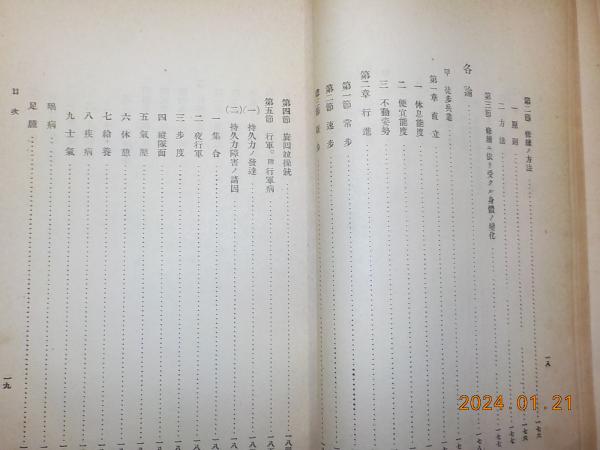 第二節 修練ノ方法 一七六
一 原則 一七六
二 方法 一七七
第三節 修練ニ依リ受クル身體ノ變化 一七七
各論
甲 徒歩兵業
第一章 直立
一 休息態度
二 便宜態度
三 不動姿勢
第二章 行進
第一節 常歩
第二節 速歩
第四節 旋囘竝操銃
第五節 行軍。附行軍病
(一) 持久力ノ發達
(二) 持久力障害ノ諸因
一 集合
二 夜行軍
三 歩度
四 縱隊面
五 氣壓
六 休憩
七 給養
八 疾病
九 士氣
眼病
足腫
目次
一八
一九
2024.01.21